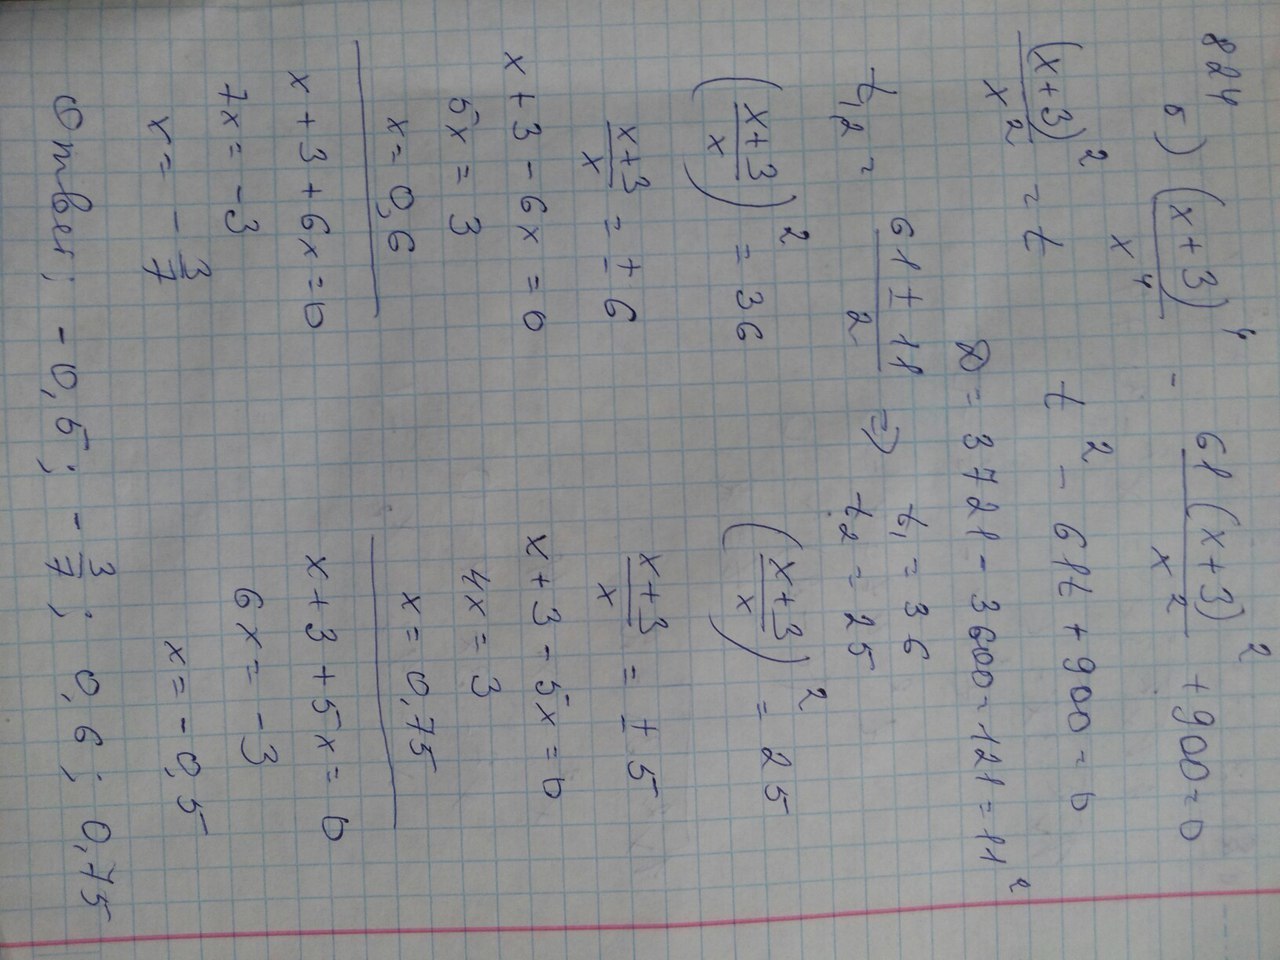 824
б) (x+3)⁴/x⁴ - 61(x+3)²/x² + 900 = 0
(x+3)²/x² = t
t² - 61t + 900 = 0
D = 3721 - 3600 = 121 = 11²
t₁,₂ = (61 ± 11)/2 ⇒ t₁ = 36
t₂ = 25
((x+3)/x)² = 36
(x+3)/x = ± 6
x + 3 - 6x = 0
5x = 3
x = 0,6
x + 3 + 6x = 0
7x = -3
x = - 3/7
((x+3)/x)² = 25
(x+3)/x = ± 5
x + 3 - 5x = 0
4x = 3
x = 0,75
x + 3 + 5x = 0
6x = -3
x = -0,5
Ответ: -0,5; -3/7; 0,6; 0,75